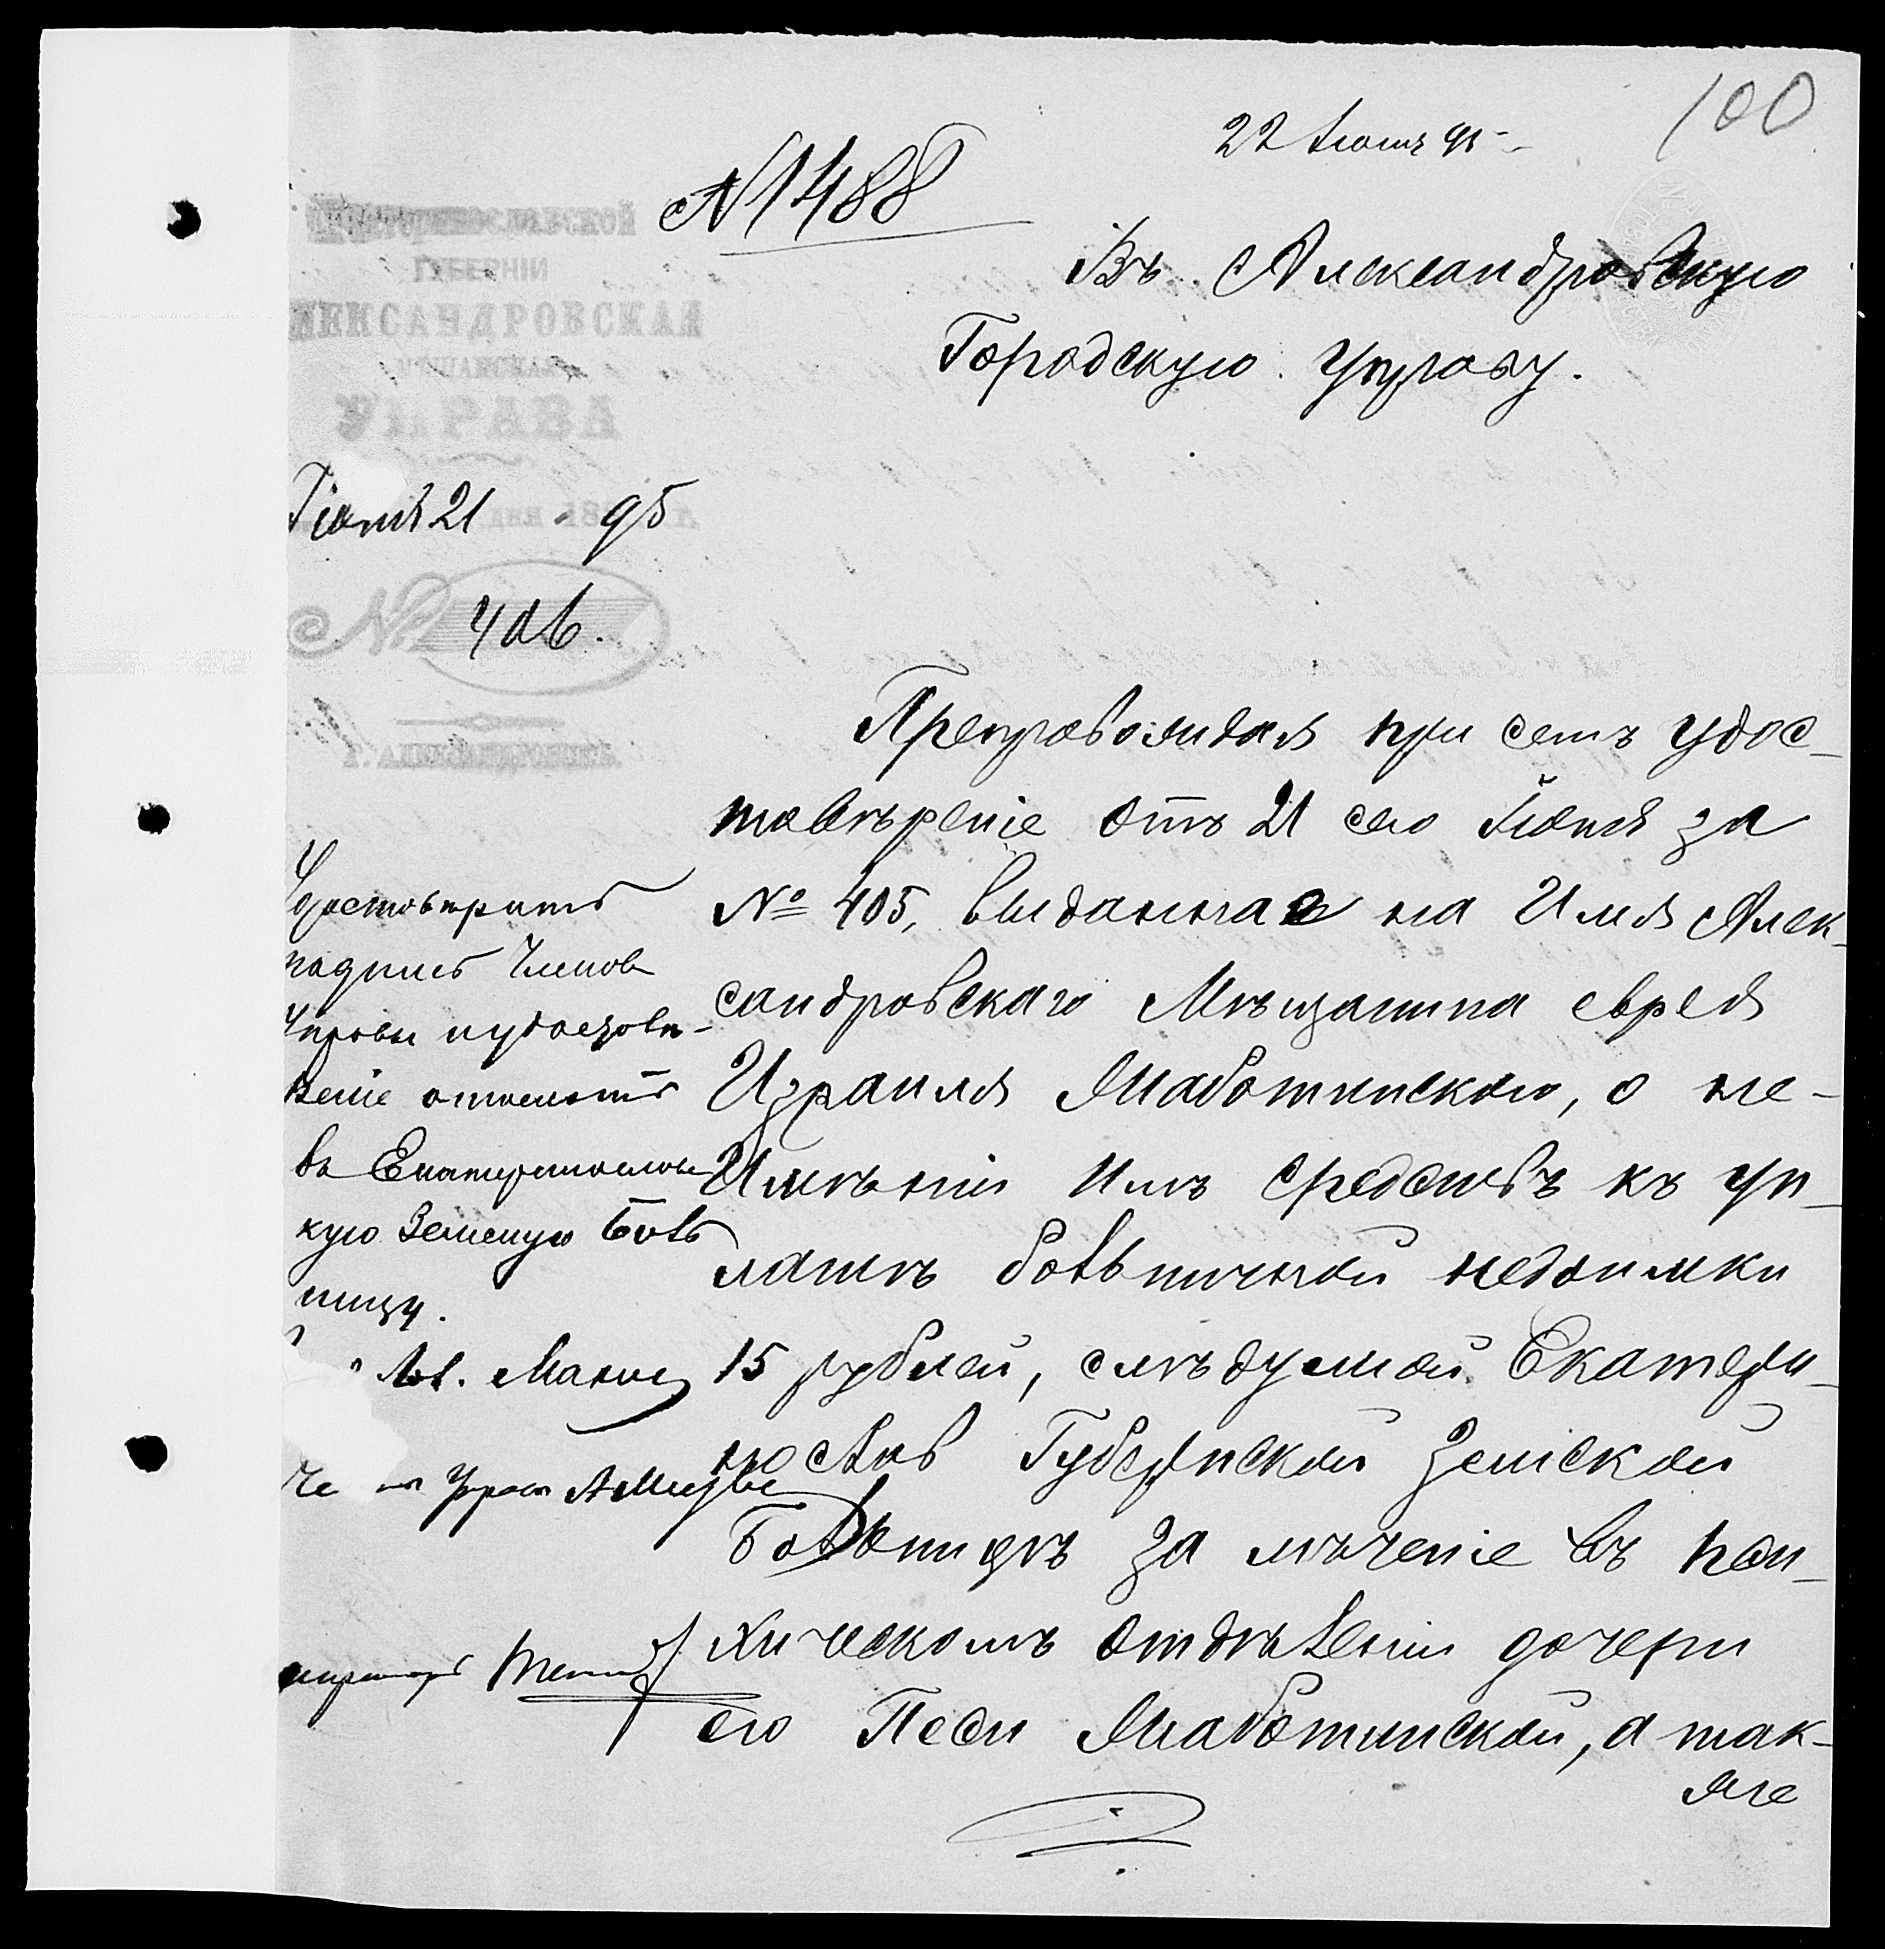 100
22 Июня 95
№ 1488
ЕКАТЕРИНОСЛАВСКОЙ
ГУБЕРНІИ
АЛЕКСАНДРОВСКАЯ
МѢЩАНСКАЯ
УПРАВА
Іюня 21 дня 1895 г.
№ 406.
Г. АЛЕКСАНДРОВСКЪ.
Въ Александровскую
Городскую Управу.
Препровождая при семъ удос-
товѣреніе отъ 21 сего Іюня за
№ 405, выданное на Имя Алек-
сандровскаго Мѣщанина еврея
Израиля Жаботинскаго, о не-
Имѣніи Имъ средствъ къ Уп-
латѣ больничной недоимки
15 рублей, слѣдуемой Екатери-
нослав Губернской Земской
Больницѣ за лѣченіе въ пси-
хическомъ отдѣленіи дочери
его Песи Жаботинской, а так-
же
Удостоверить
подпись Членов
Управы и удостовѣ-
реніе отослать
въ Екатеринославс
кую Земскую Боль
ницу.